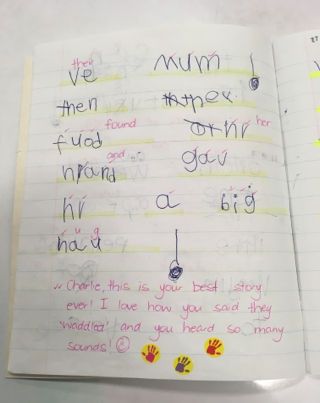 the
ve mum
then
found her
fuod hr
and
gav
hr a big
u g
Charlie, this is your best story
ever! I love how you said they
'waddled' and you heard so many
sounds!